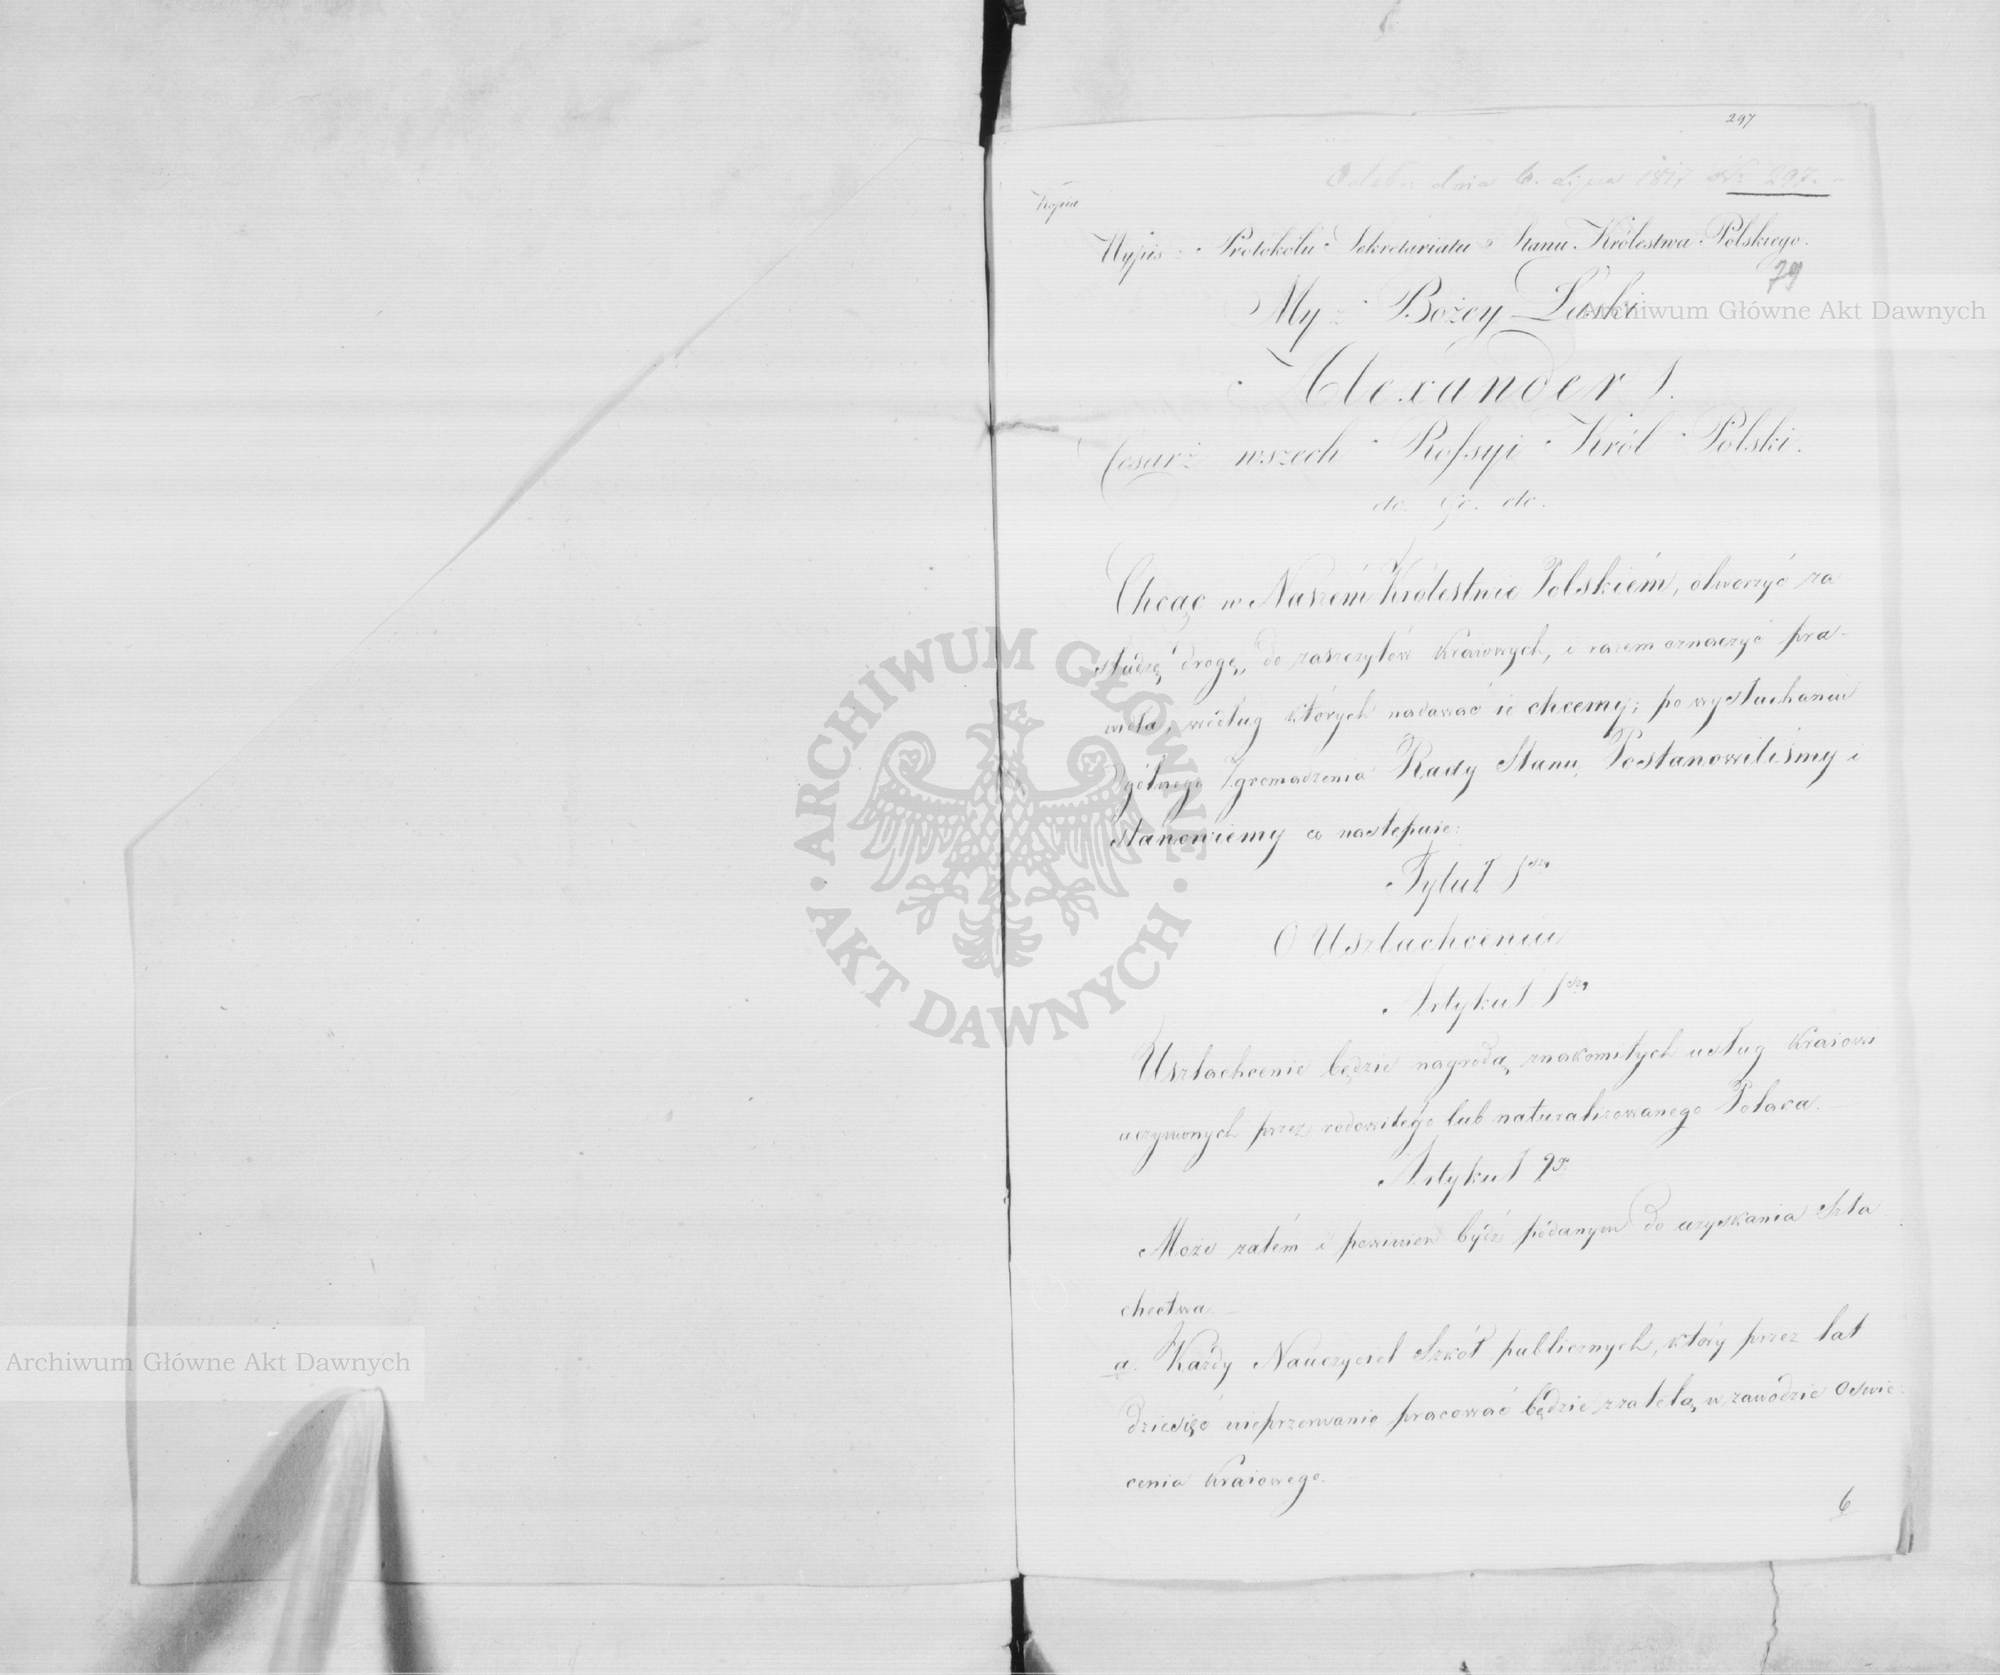 297
Odebr: dnia 6. Lipca 1817 Nr 297.
Kopia
Wypis z Protokółu Sekretariatu Stanu Królestwa Polskiego.
79
My z Bożey Łaski
Alexander I.
Cesarz wszech Rossyi Król Polski.
etc. etc. etc.
Chcąc w Naszém Królestwie Polskiém, otworzyć za
służę drogę, do zaszczytów Kraiowych, i razem oznaczyć pra-
widła, według których nadawać ie chcemy; po wysłuchaniu
Ogólnego Zgromadzenia Rady Stanu, Postanowiliśmy i
stanowiemy co następuie:
Tytuł 1szy
O Uszlachceniu
Artykuł 1szy
Uszlachcenie będzie nagrodą znakomitych usług Kraiowi
uczynionych przez rodowitego lub naturalizowanego Polaka.
Artykuł 2gi
Może zatém i powinien być podanym do uzyskania Szla
chectwa.
a. Każdy Nauczyciel Szkół publicznych, który przez lat
dziesięć nieprzerwanie pracować będzie z zaletą w zawodzie Oświe
cenia Kraiowego.
6
Archiwum Główne Akt Dawnych
ARCHIWUM GŁÓWNE AKT DAWNYCH
Archiwum Główne Akt Dawnych